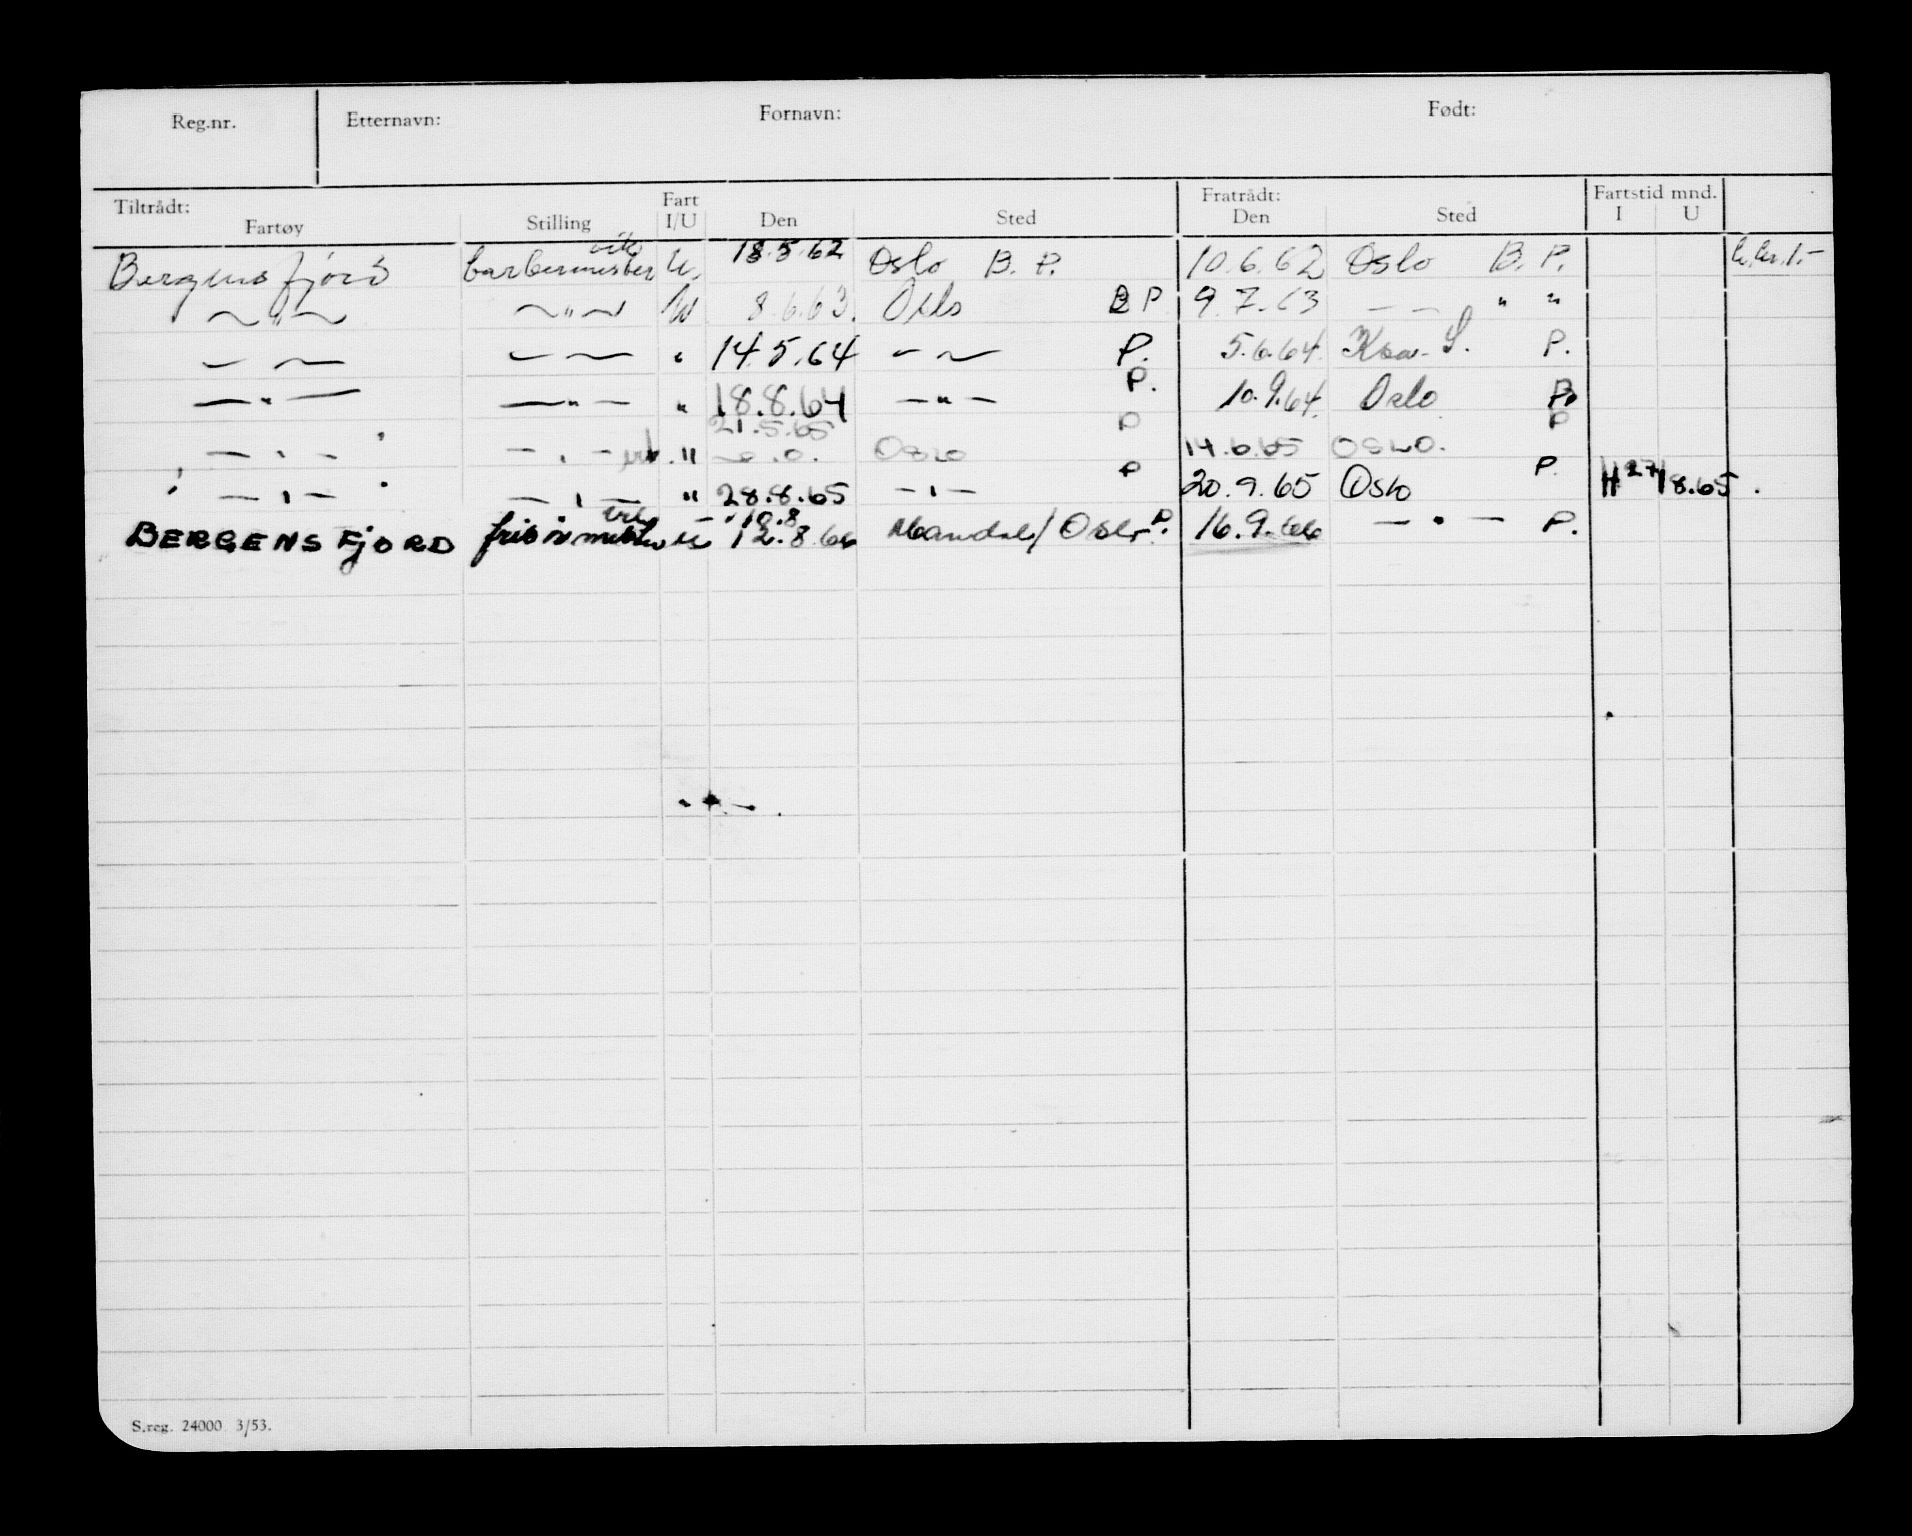 Reg.nr. Etternavn: Fornavn: Født:
Tiltrådt: Fart Fratrådt: Fartstid mnd.
Fartøy Stilling I/U Den Sted Den Sted I U
Bergensfjord barbermester U. 18.5.62 Oslo B. P. 10.6.62 Oslo B. P.
~ " ~ ~ " ~ U 8.6.63. Oslo B P 9.7.63 — — " "
— — — — " 14.5.64 — — P. 5.6.64. P.
— " — — " — " 18.8.64 — " — P. 10.9.64. Oslo P.
— " — — " — " 21.5.65 Oslo P 14.6.65 OSLO. P
— " — — " — " 28.8.65 — " — P 20.9.65 Oslo P. H 27/8.65.
BERGENSFJORD U 12.8.66 Mandal/Oslo P. 16.9.66 — " — P.
S.reg. 24000 3/53.